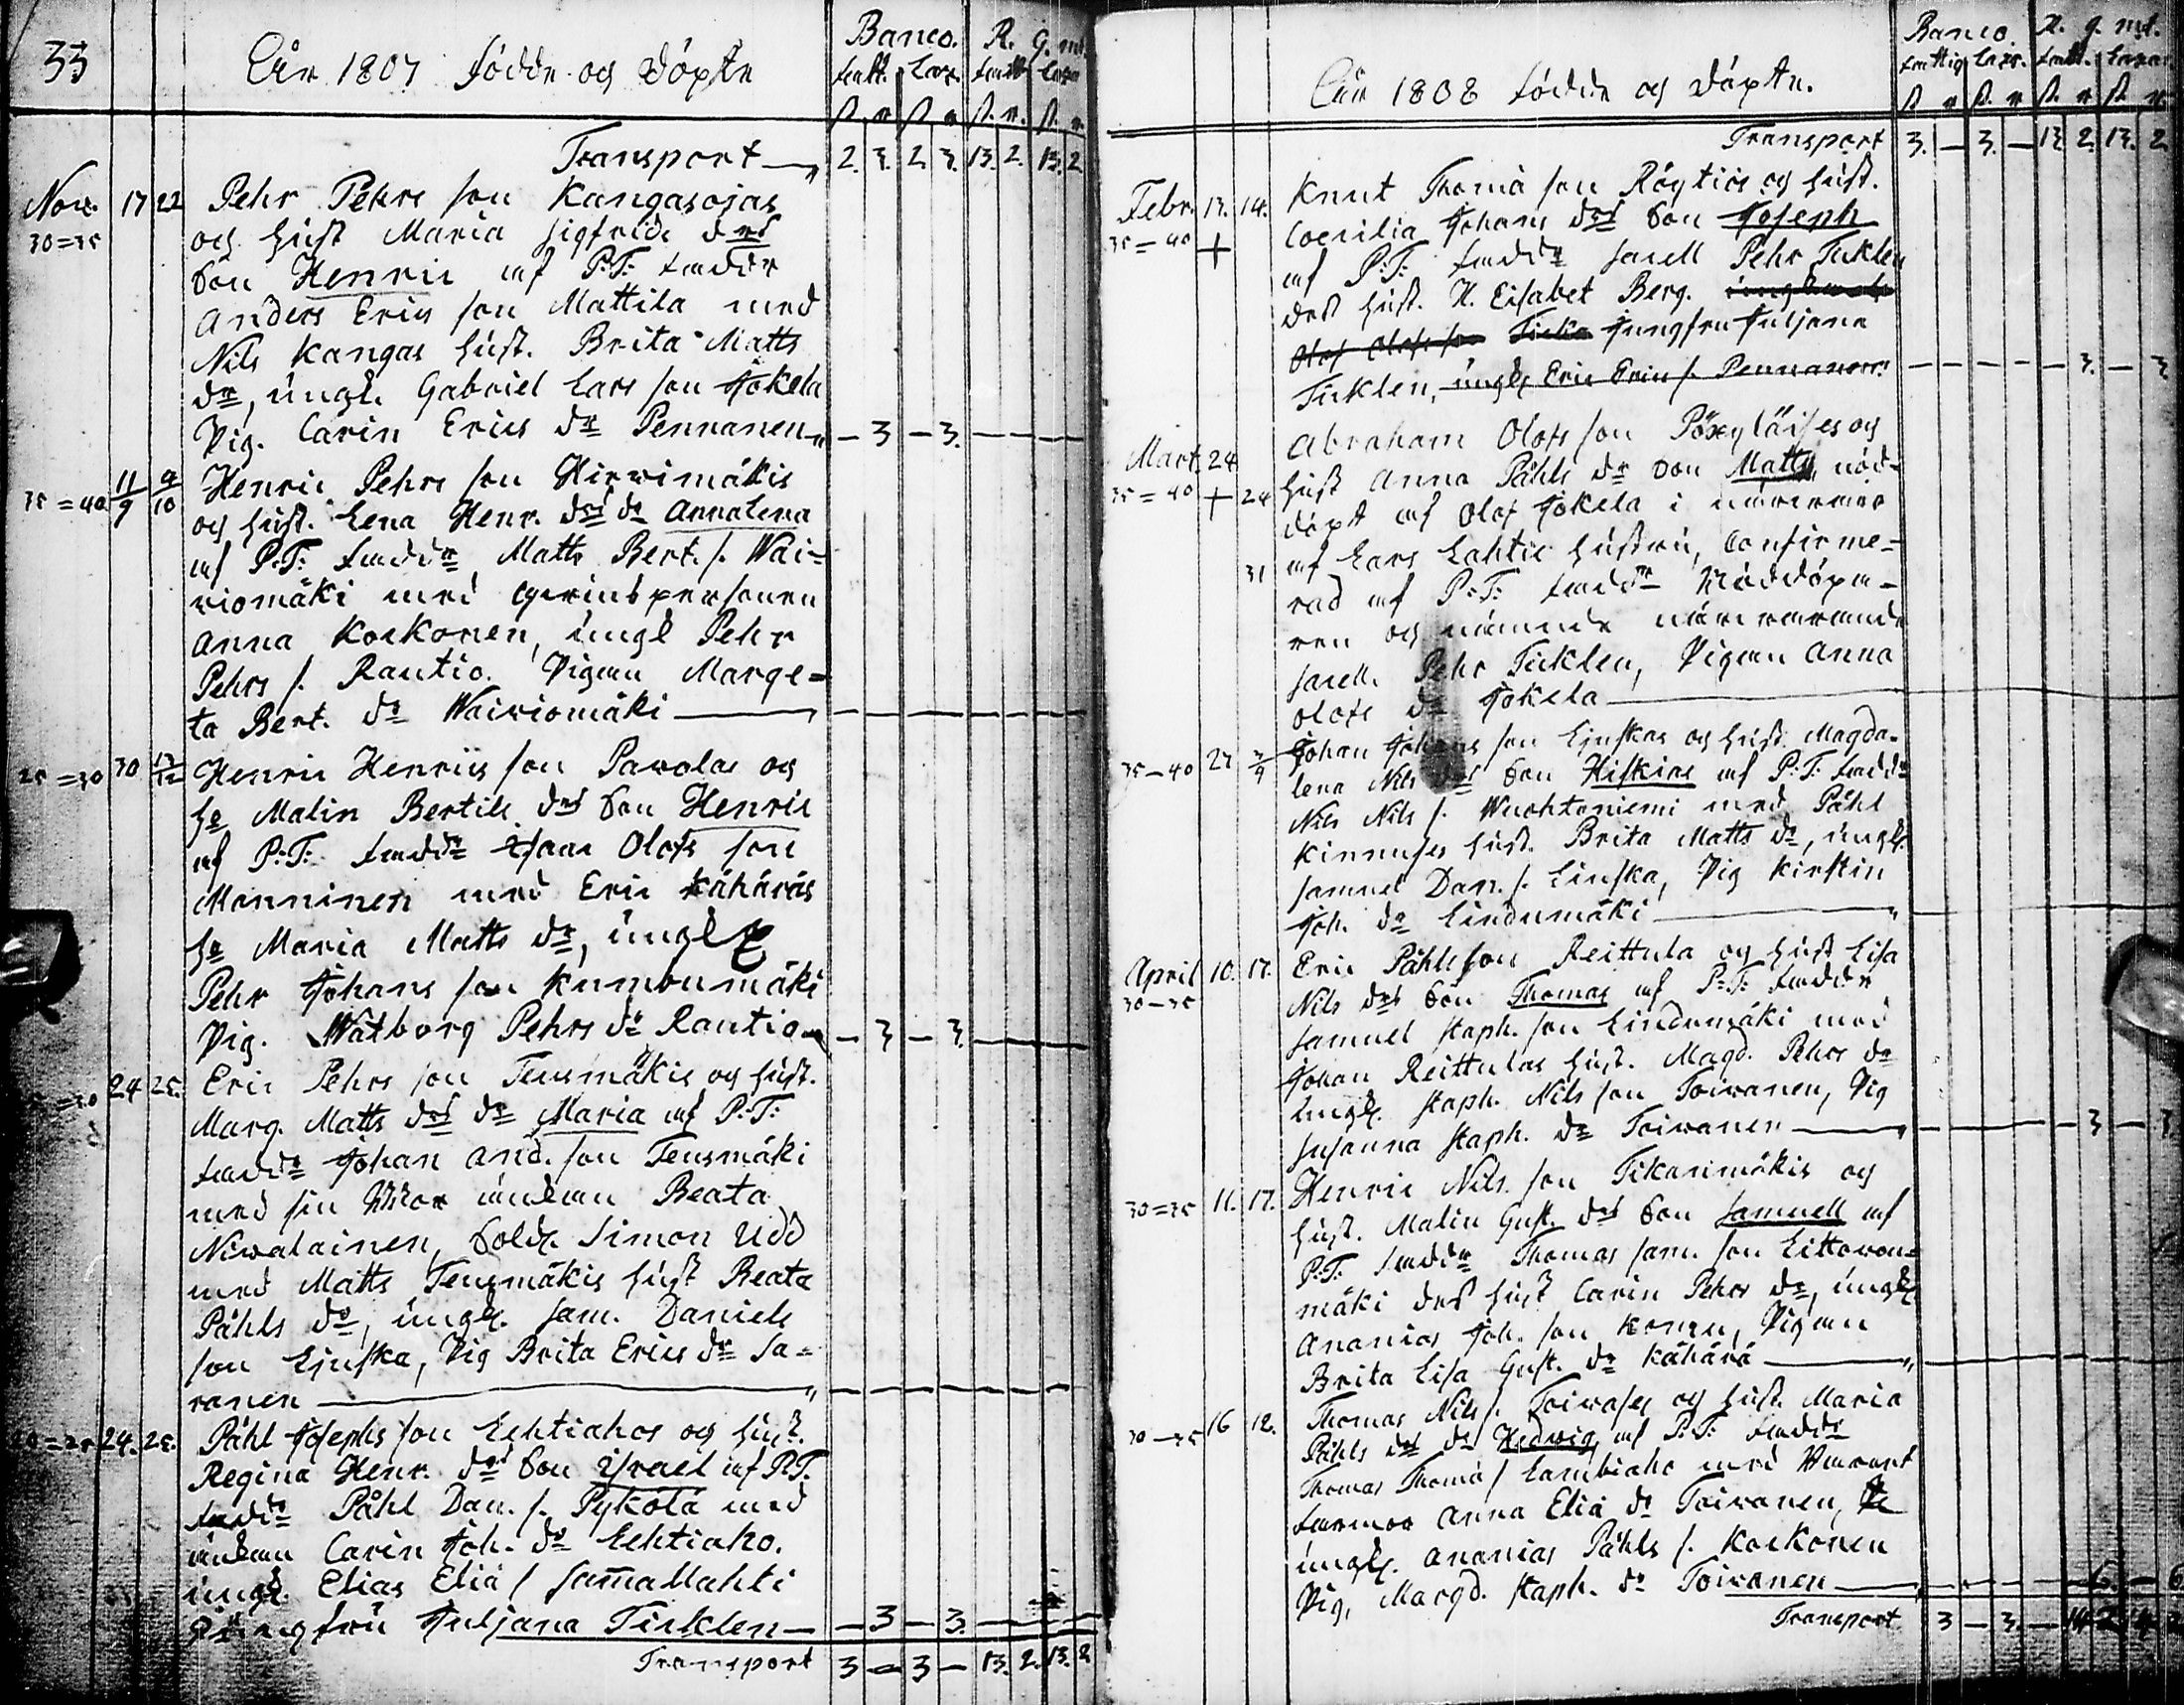 33
Åhr 1807 födde og döpte
Banco. R. g. mt.
fatt. Laz. fatt Laza
Transport 2. 3. 2. 3. 13. 2. 13. 2
Nov. 17 22 Pehr Pehrs son Kangasojas
30=35 og hust Maria Sigfrids drs
Son Henric af P:T: faddr
Anders Erics son Mattila med
Nils Kangas hust. Brita Matts
dr, ungk. Gabriel Lars son Jokela
Pig. Carin Erics dr Pennanen — 3 — 3.
35=40 11/9 4/10 Henric Pehrs son Hirvimäkis
og hust. Lena Henr. drs dr Annalena
af P:T: faddr Matts Bert. s. Wai=
viomäki med qvinspersonen
Anna Korkonen, ungk Pehr
Pehrs s. Rautio. Pigan Marge=
ta Bert. dr Waiviomäki
25=30 30 13/12 Henric Henrics son Pavolas og
he Malin Bertils drs Son Henric
af P:T: faddr Isaac Olofs son
Manninen med Eric Kähäräs
he Maria Matts dr, ungk
Pehr Johans son Kumbumäki
Pig. Walborg Pehrs dr Rautio — 3 — 3.
24 25. Eric Pehrs son Tensmäkis og hust.
Marg. Matts drs dr Maria af P:T:
faddr Johan And. son Tensmäki
med sin Mor änkan Beata
Niwalainen, Sold. Simon Udd
med Matts Tensmäkis hust Beata
Påhls dr, ungk. Sam. Daniels
son Ljuska, Pig Brita Erics dr Sa=
ranen
24. 25. Påhl Josephs son Lehtiahos og hust.
Regina Henr. drs Son Israel af P.T.
faddr Påhl Dan. s. Pykölä med
änkan Carin Joh. dr Lehtiaho.
ungk. Elias Eliä s Sam̄allahti
Jungfru Juljana Ticklen — 3 — 3.
Transport 3 — 3 — 13. 2. 13. 2
Åhr 1808 födde og döpte.
Banco. R. g. mt.
fattig Lazr. fatt. Lazar
Transport 3. — 3. — 13 2. 13. 2
Febr. 13. 14. Knut Thomä son Röytiös og hust.
35=40 + Coecilia Johans drs Son Joseph
af P:T: faddr Saell Pehr Ticklen
des hust. H. Elsabet Berg.
Olof Olofs son Jungfru Juljana
Ticklen, ungk Eric Erics s. Pennanen — 3. — 3
Mart. 24 Abraham Olofs son Pöxyläises og
35=40 + 24 hust Anna Påhls dr Son Matts nöd=
döpt af Olof Jokela i närvaro
af Lars Lahtis hustru, Confirme=
31 rad af P:T: faddr Nöddöpa=
ren og nämnde närvarande
Saell. Pehr Ticklen, Pigan Anna
Olofs dr Jokela
35=40 27 3/4 Johan Johans son Ljuskas og hust. Magda=
lena Nils drs Son Hiskias af P:T: faddr
Nils Nils s. Wuohtoniemi med Påhl
Kinnuses hust. Brita Matts dr, ungk.
Samuel Dan. s. Liuska, Pig Kirstin
Joh. dr Lindumäki
April 10. 17. Eric Påhls son Reittula og hust Lisa
30=35 Nils drs Son Thomas af P:T: faddr
Samuel Staph. son Lindumäki med
Johan Reittulas hust. Magd. Pehrs dr
ungk. Staph. Nils son Toivanen, Pig
Susanna Staph. dr Toivanen — 3 — 3
30=35 11. 17. Henric Nils son Tikanmäkis og
hust. Malin Gust. drs Son Samuell af
P:T: faddr Thomas Sam. son Littovon=
mäki des hust Carin Pehrs dr, ungk
Ananias Joh. son Konen, Pigan
Brita Lisa Gust. dr Kähärä
30=35 16 17. Thomas Nils s. Toivases og hust. Maria
Påhls drs dr Hedvig af P:T: faddr
Thomas Thomä s Lambiaho med
farmor Anna Eliä dr Toivanen,
ungk. Ananias Påhls s. Korkonen
Pig, Margd. Staph. dr Toivanen — 6 — 6
Transport 3 — 3. — 14 2 14 2